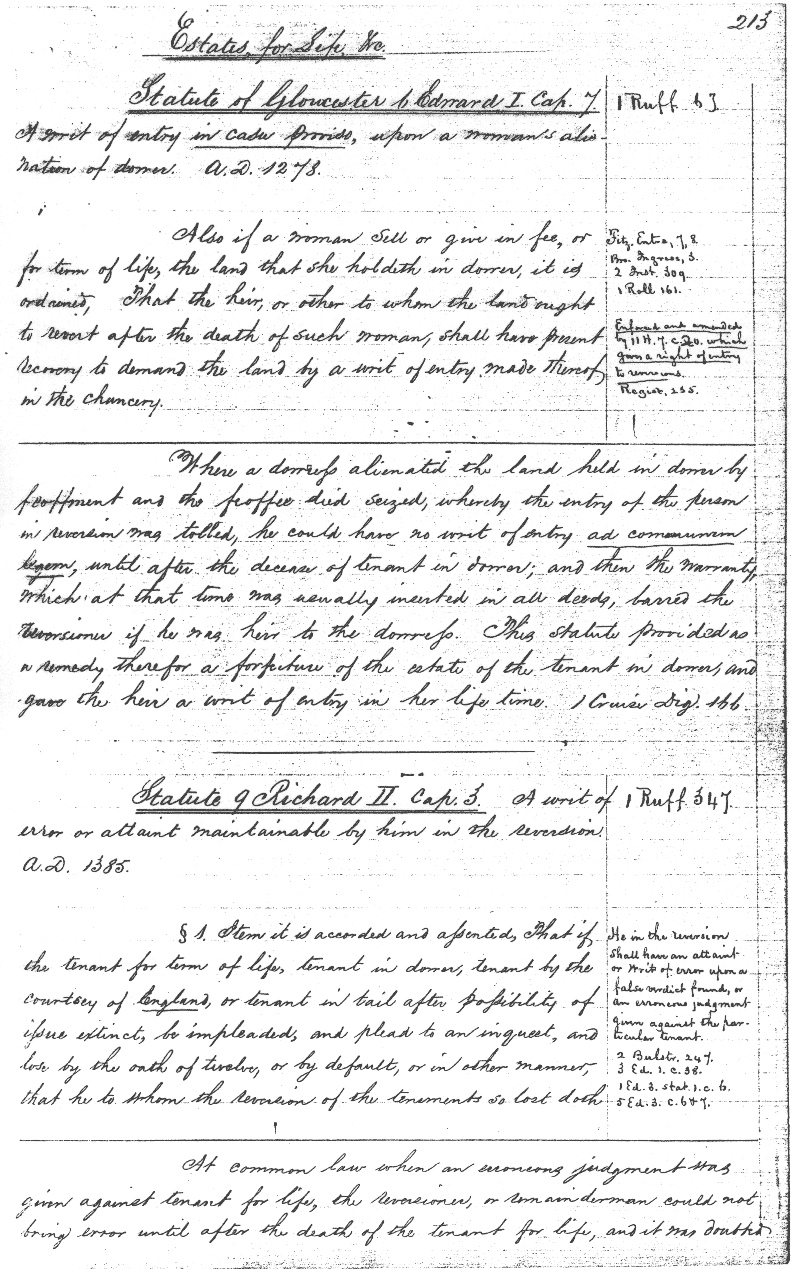 213
Estates, for Life, &c.
Statute of Gloucester 6 Edward I. Cap. 7.
1 Ruff. 63
A writ of entry in casu proviso, upon a woman's alie-
nation of dower. A.D. 1278.
Also if a woman sell or give in fee, or
for term of life, the land that she holdeth in dower, it is
ordained, That the heir, or other to whom the land ought
to revert after the death of such woman, shall have present
recovery to demand the land by a writ of entry made thereof,
in the chancery.
Fitz. Entre, 7, 8.
Bro. Ingress, 3.
2 Inst. 309
1 Roll 161.
Enforced and amended
by 11 H. 7. c. 20. which
gives a right of entry
to
Regist, 235.
Where a dowress alienated the land held in dower by
feoffment and the feoffee died seized, whereby the entry of the person
in reversion was tolled, he could have no writ of entry ad communem
legem, until after the decease of tenant in dower; and then the warranty,
which at that time was usually inserted in all deeds, barred the
reversioner if he was heir to the dowress. This statute provided as
a remedy therefor a forfeiture of the estate of the tenant in dower, and
gave the heir a writ of entry in her life time. 1 Cruise Dig. 166.
Statute 9 Richard II. Cap. 3. A writ of
1 Ruff. 347.
error or attaint maintainable by him in the reversion.
A.D. 1385.
§ 1. Item it is accorded and assented, That if
the tenant for term of life, tenant in dower, tenant by the
courtsey of England, or tenant in tail after possibility of
issue extinct, be impleaded, and plead to an inquest, and
lose by the oath of twelve, or by default, or in other manner,
that he to whom the reversion of the tenements so lost doth
He in the reversion
shall have an attaint
or writ of error upon a
false verdict found, or
an erroneous judgment
given against the par-
ticular tenant.
2 Bulstr. 247.
3 Ed. 1. c. 38.
1 Ed. 3. stat. 1. c. 6.
5 Ed. 3. c. 6 & 7.
At common law when an erroneous judgment was
given against tenant for life, the reversioner, or remainderman could not
bring error until after the death of the tenant for life, and it was doubted